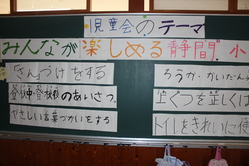 児童会のテーマ
みんなが楽しめる静間小
「さん」づけをする
登校中・登校後のあいさつ
やさしい言葉づかいをする
ろうか・かいだん
くつを正しくは
トイレをきれいに使